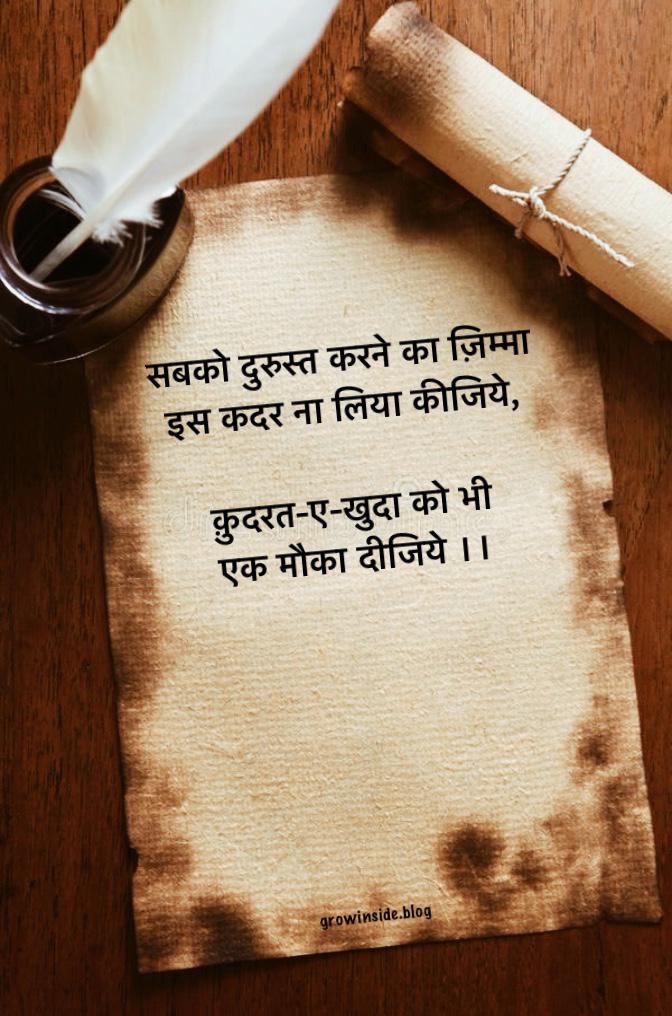 सबको दुरुस्त करने का ज़िम्मा
इस कदर ना लिया कीजिये,
क़ुदरत-ए-खुदा को भी
एक मौका दीजिये ।।
growinside.blog